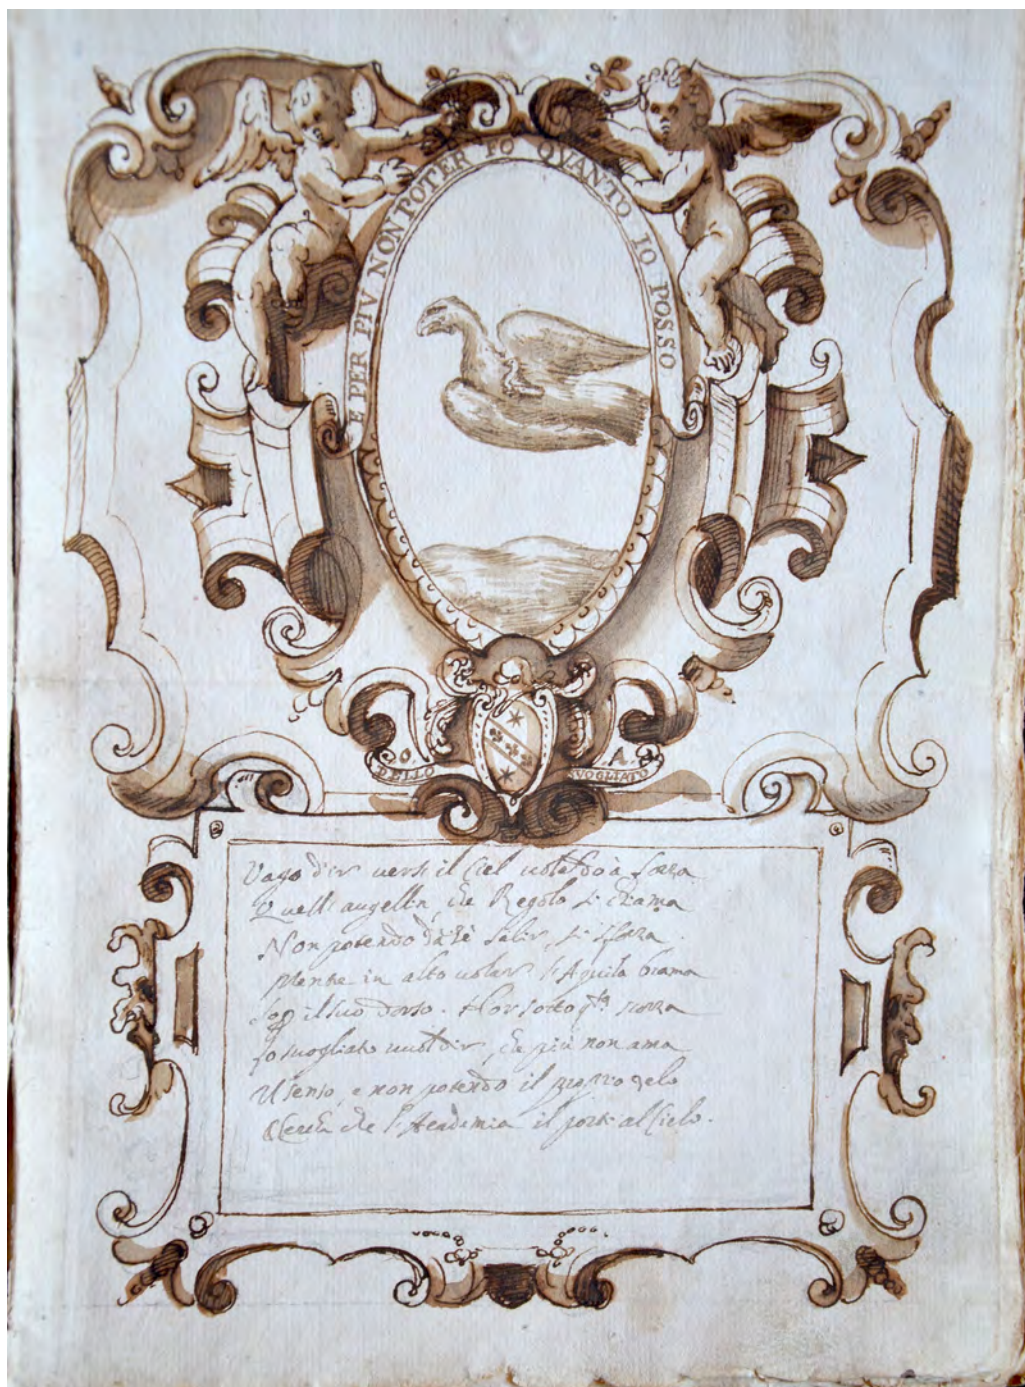 E PER PIV NON POTER FO QVANTO IO POSSO
DELLO SVOGLIATO
Vago d'ir verso il Ciel
Quell'augellin, che Regolo si chiama
Non potendo da sè salir, si sforza
Mentre in alto volar l'Aquila brama
il suo dorso. Hor sotto scorza
Lo svogliato vuol dir, che più non ama
Il senso, e non potendo il proprio zelo
Cerca che l'Academia il porti al Cielo.